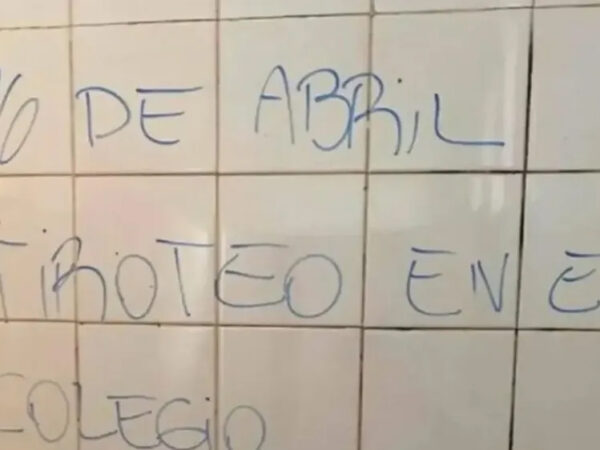 6 DE ABRIL
TIROTEO EN E
COLEGIO